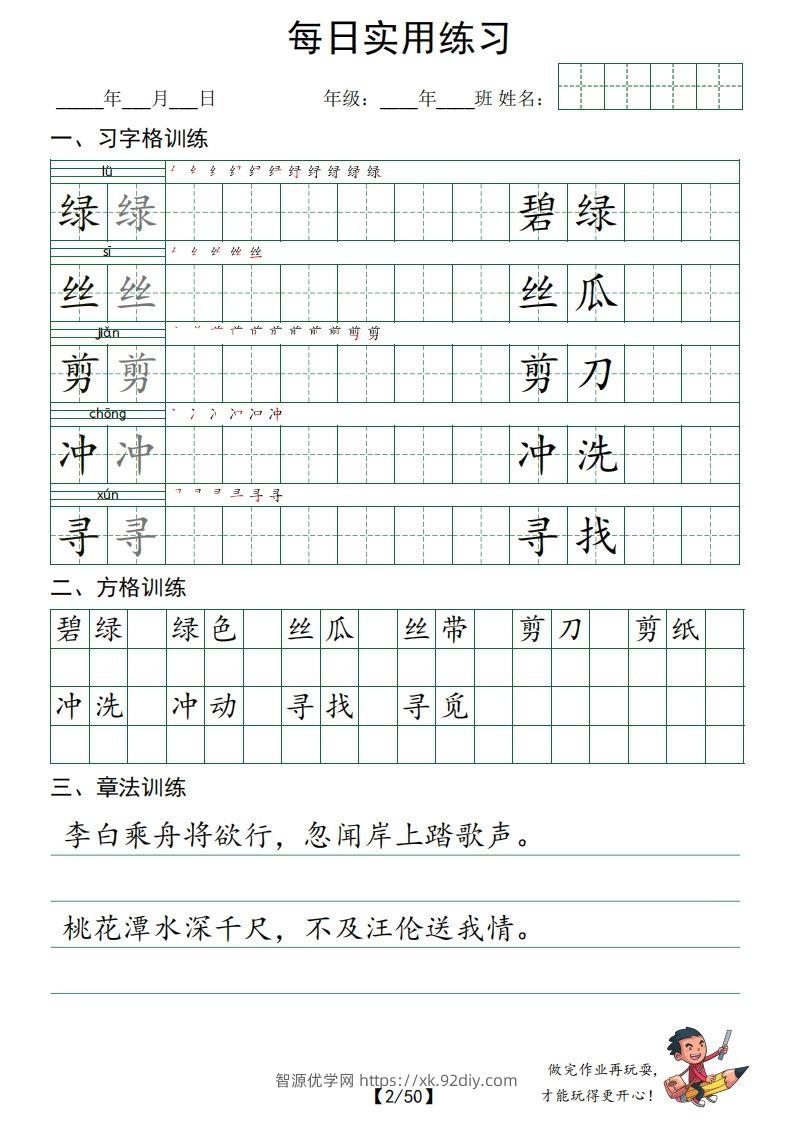 每日实用练习
_____年___月___日 年级：____年____班 姓名：
一、习字格训练
lǜ
绿 绿 碧 绿
sī
丝 丝 丝 瓜
jiǎn
剪 剪 剪 刀
chōng
冲 冲 冲 洗
xún
寻 寻 寻 找
二、方格训练
碧 绿 绿 色 丝 瓜 丝 带 剪 刀 剪 纸
冲 洗 冲 动 寻 找 寻 觅
三、章法训练
李白乘舟将欲行，忽闻岸上踏歌声。
桃花潭水深千尺，不及汪伦送我情。
做完作业再玩耍，
才能玩得更开心！
智源优学网 https://xk.92diy.com
【2/50】